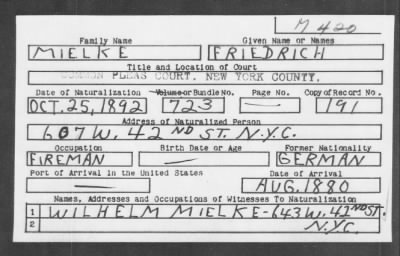 M 420
Family Name Given Name or Names
MIELKE FRIEDRICH
Title and Location of Court
COMMON PLEAS COURT, NEW YORK COUNTY.
Date of Naturalization Volume or Bundle No. Page No. Copy of Record No.
OCT. 25, 1892 723 — 191
Address of Naturalized Person
607 W. 42 ND ST. N.Y.C.
Occupation Birth Date or Age Former Nationality
FIREMAN — GERMAN
Port of Arrival in the United States Date of Arrival
— AUG. 1880
Names, Addresses and Occupations of Witnesses To Naturalization
1 WILHELM MIELKE - 643 W. 42 ND ST.
2 N.Y.C.